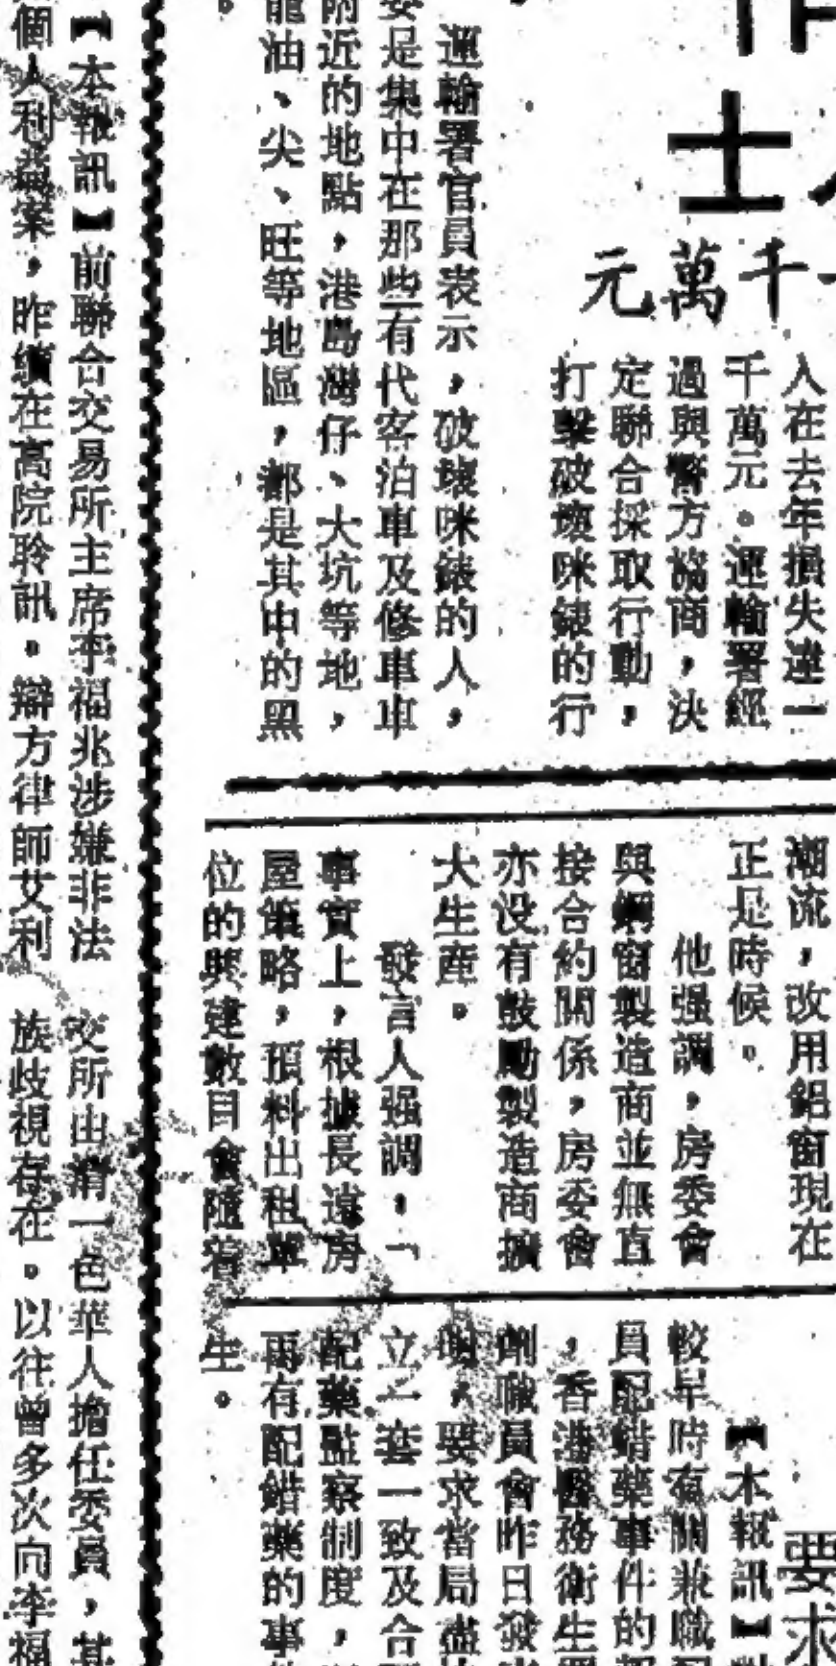 士
千萬元
人在去年損失達一
千萬元。運輸署經
過與警方協商,決
定聯合採取行動,
打擊破壞咪錶的行
運輸署官員表示,破壞咪錶的人,
要是集中在那些有代客泊車及修車車
附近的地點,港島灣仔、大坑等地,
龍油、尖、旺等地區,都是其中的黑
。
潮流,改用鋁窗現在
正是時候。
他强調,房委會
與鋼窗製造商並無直
接合約關係,房委會
亦没有鼓勵製造商擴
大生產。
發言人强調,「
事實上,根據長遠房
屋策略,預料出租單
位的興建數目會隨着
要求
【本報訊】對
較早時有關兼職配
員配錯藥事件的
,香港醫務衛生署
劑職員會昨日發
明,要求當局盡
立一套一致及合
配藥監察制度,
再有配錯藥的事
生。
【本報訊】前聯合交易所主席李福兆涉嫌非法
個人利益案,昨續在高院聆訊。辯方律師艾利
交所由清一色華人擔任委員,甚
族歧視存在。以往曾多次向李福